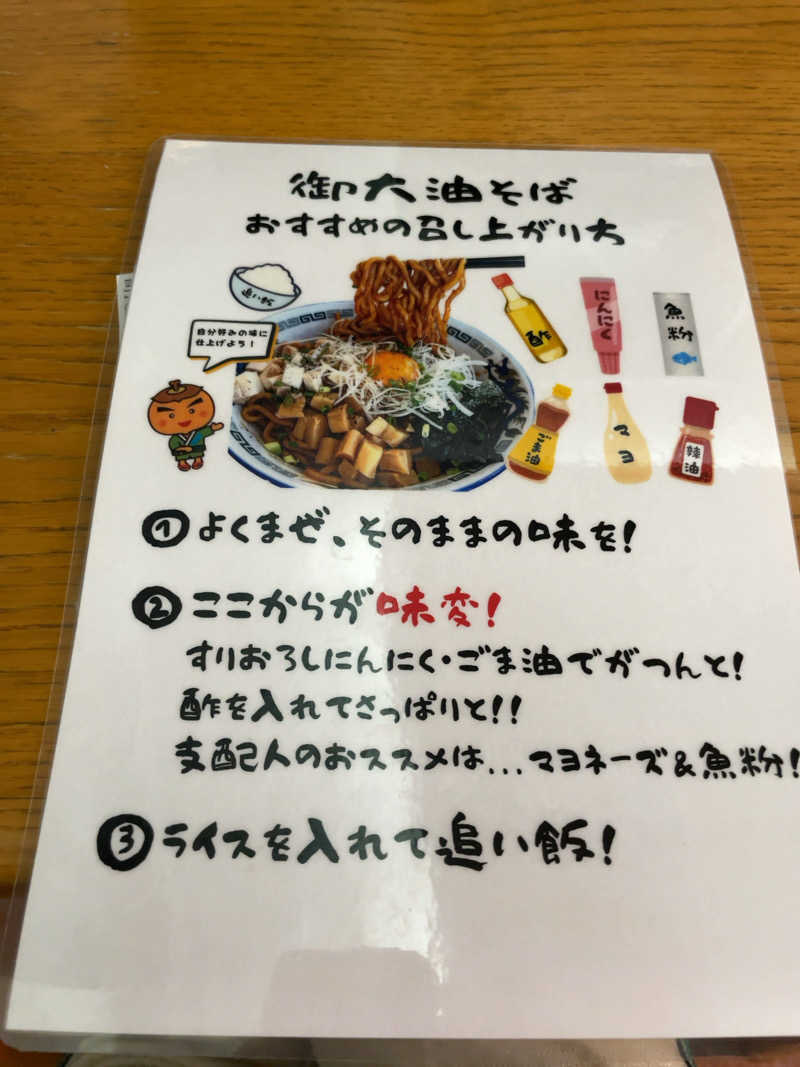 御大油そば
おすすめの召し上がり方
追い飯
自分好みの味に
仕上げよう！
酢
にんにく
魚粉
ごま油
マヨ
辣油
①よくまぜ、そのままの味を！
②ここからが味変！
すりおろしにんにく・ごま油でがつんと！
酢を入れてさっぱりと！！
支配人のおススメは...マヨネーズ&魚粉！
③ライスを入れて追い飯！